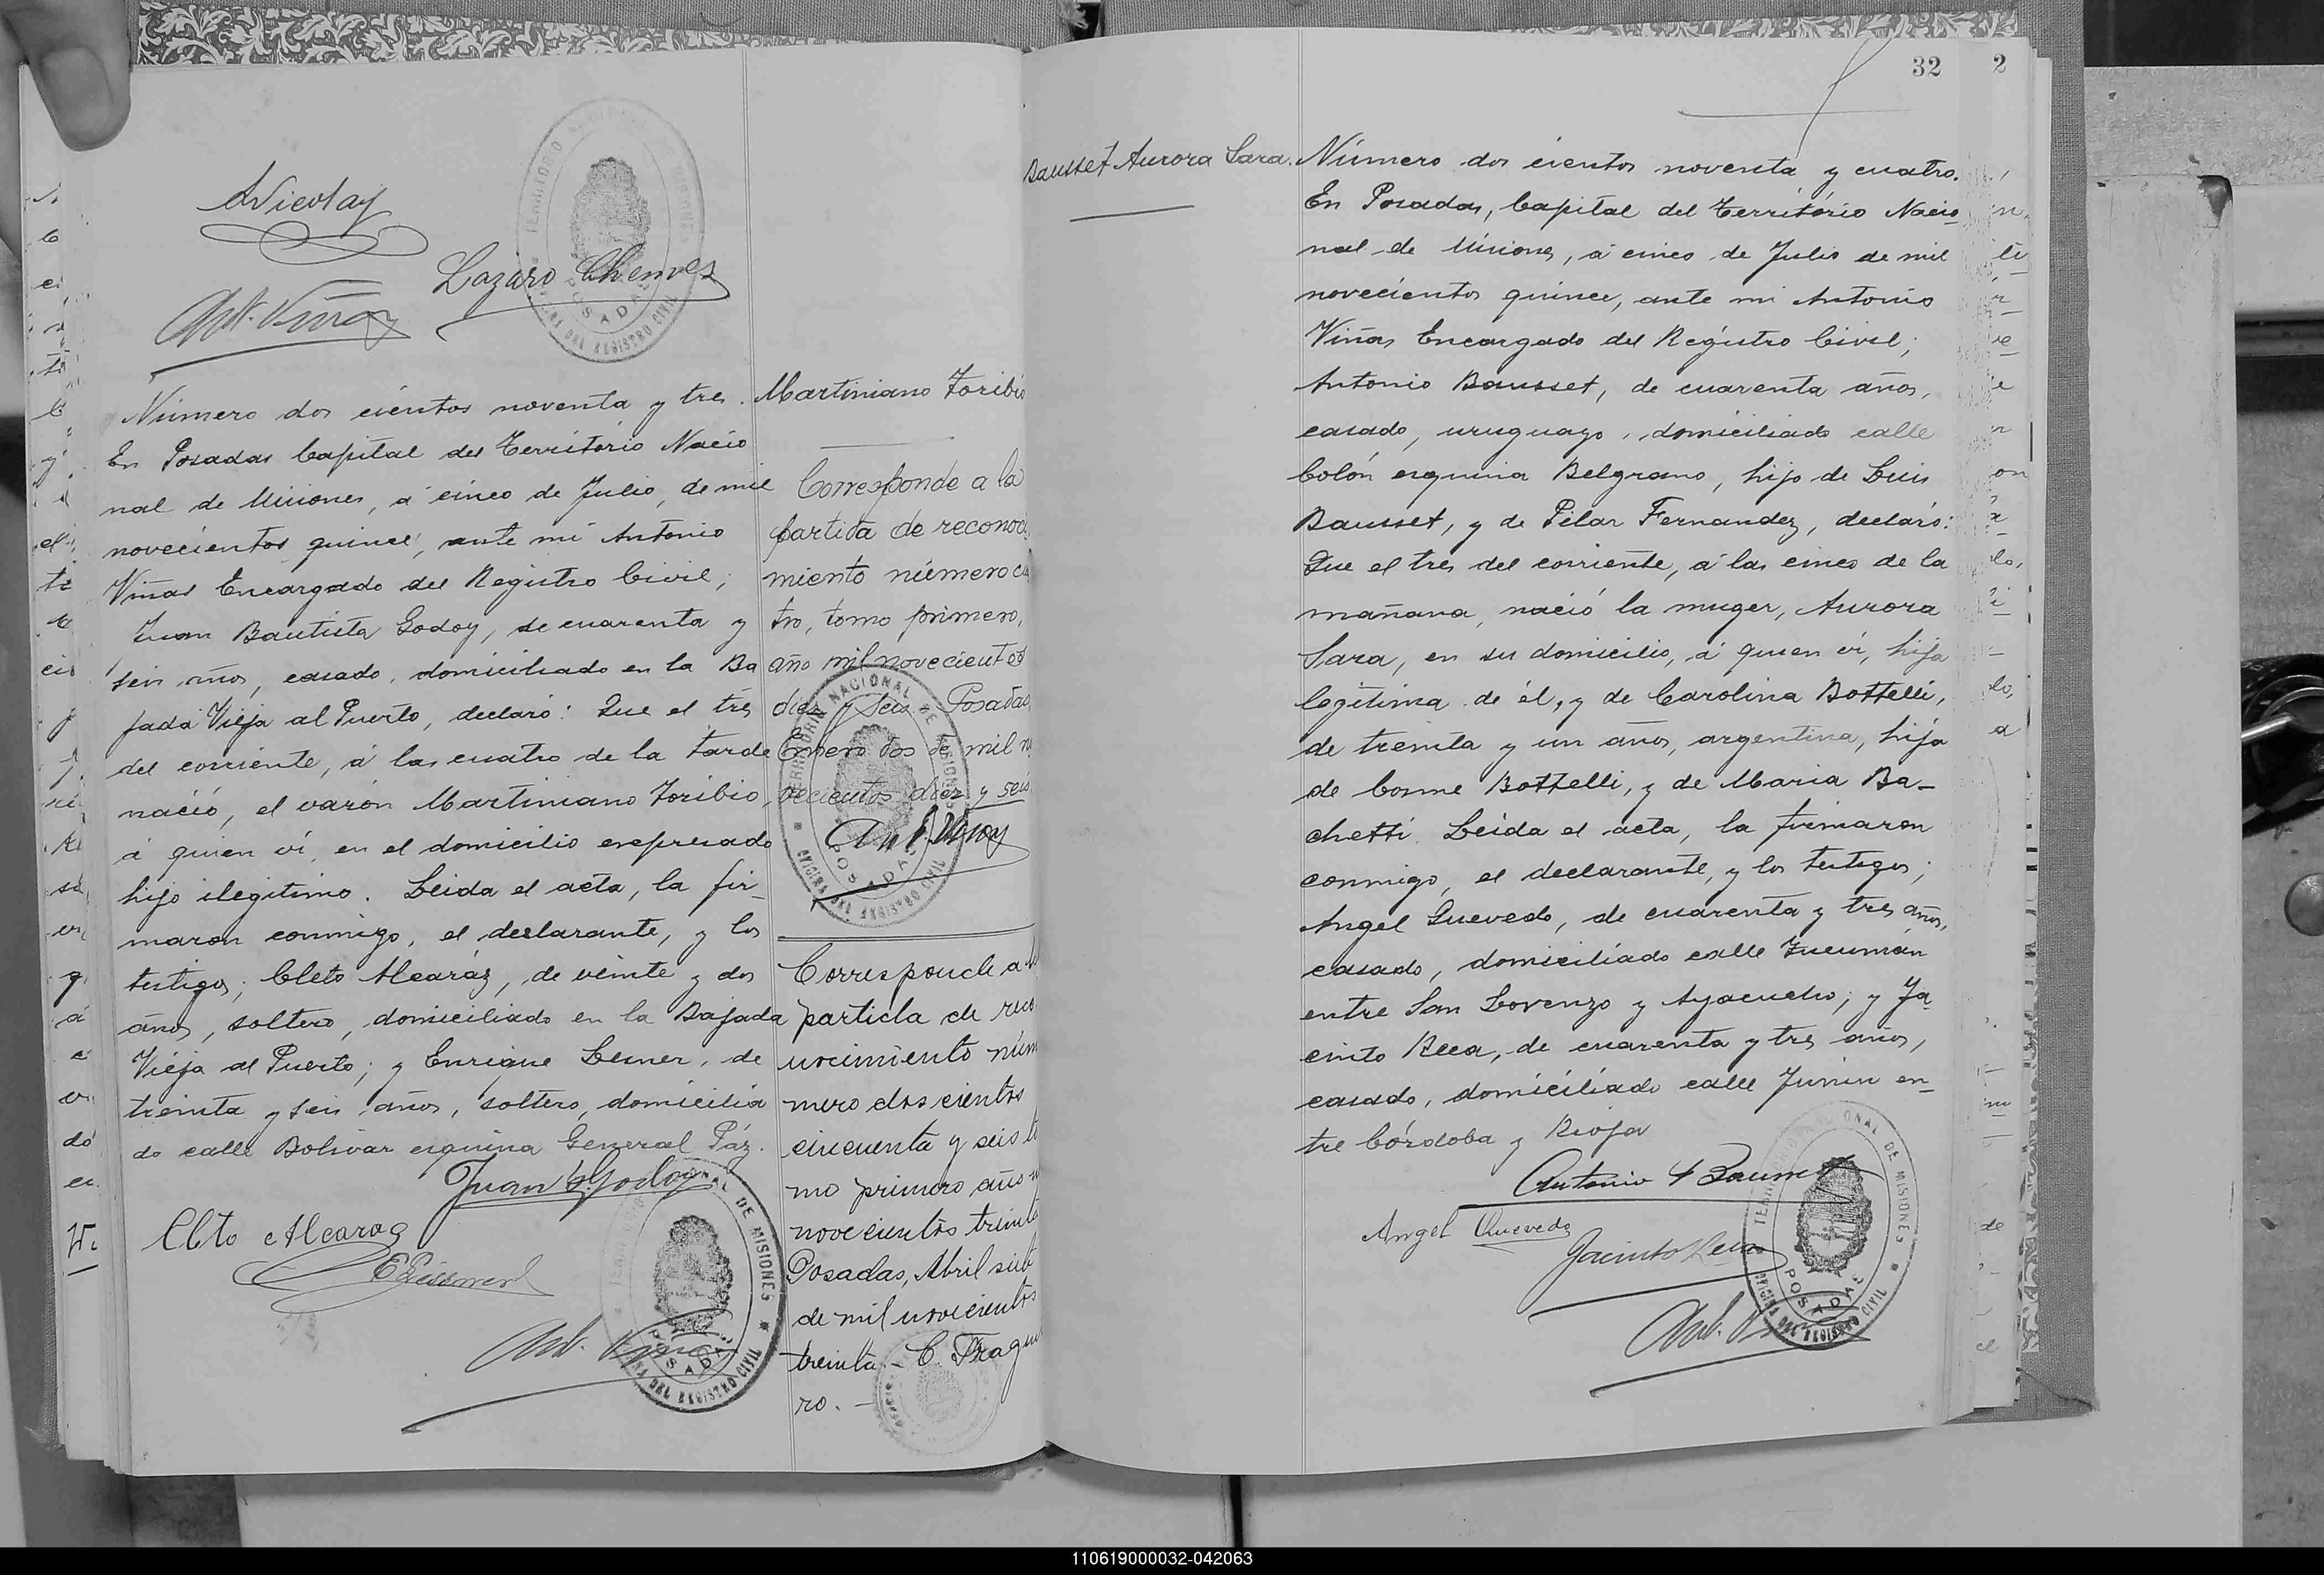 ANicolay
Lazaro Chemes
Ant. Viñas
Número dos cientos noventa y tres.
En Posadas Capital del Território Nacio
nal de Misiones, á cinco de Julio, de mil
novecientos quince, ante mi Antonio
Viñas Encargado del Registro Civil;
Juan Bautista Godoy, de cuarenta y
seis años, casado, domiciliado en la Ba
jada Vieja al Puerto, declaró: Que el tres
del corriente, á las cuatro de la tarde
nació, el varón Martiniano Toribio,
á quien ví, en el domicilio expresado
hijo ilegitimo. Leida el acta, la fir-
maron conmigo, el declarante, y los
testigos; Cleto Alcaráz, de veinte y dos
años, soltero, domiciliado en la Bajada
Vieja al Puerto; y Enrique Lesner, de
treinta y seis años, soltero, domicilia
do calle Bolivar esquina General Páz.
Juan B Godoy
Cleto Alcaraz
Ant. Viñas
Martiniano Toribio
Corresponde a la
partida de reconoci
miento número cua
tro, tomo primero,
año mil novecientos
diez y seis Posadas,
Enero dos de mil no
vecientos diez y seis
Ant. Viñas
Corresponde a la
partida de reco
nocimiento nú
mero dos cientos
cincuenta y seis to
mo primero año
novecientos treinta
Posadas, Abril siete
de mil novecientos
treinta.- C. Frague
ro. -
TERRITORIO NACIONAL DE MISIONES
OFICINA DEL REGISTRO CIVIL
POSADAS
32
2
Bausset Aurora Sara.
Número dos cientos noventa y cuatro.
En Posadas, Capital del Território Nacio-
nal de Misiones, á cinco de Julio de mil
novecientos quince, ante mi Antonio
Viñas Encargado del Registro Civil;
Antonio Bausset, de cuarenta años,
casado, uruguayo, domiciliado calle
Colón esquina Belgrano, hijo de Luis
Bausset, y de Pilar Fernandez, declaró:
Que el tres del corriente, á las cinco de la
mañana, nació la muger, Aurora
Sara, en su domicilio, á quien ví, hija
legitima de él, y de Carolina Bottelli,
de treinta y un años, argentina, hija
de Cosme Bottelli, y de Maria Ba-
chetti. Leida el acta, la firmaron
conmigo, el declarante, y los testigos;
Angel Quevedo, de cuarenta y tres años,
casado, domiciliado calle Tucumán
entre San Lorenzo y Ayacucho; y Ja
cinto Reca, de cuarenta y tres años,
casado, domiciliado calle Junin en-
tre Córdoba y Rioja
Antonio Bausset
Angel Quevedo
Jacinto Reca
Ant. Viñas
TERRITORIO NACIONAL DE MISIONES
OFICINA DEL REGISTRO CIVIL
POSADAS
110619000032-042063